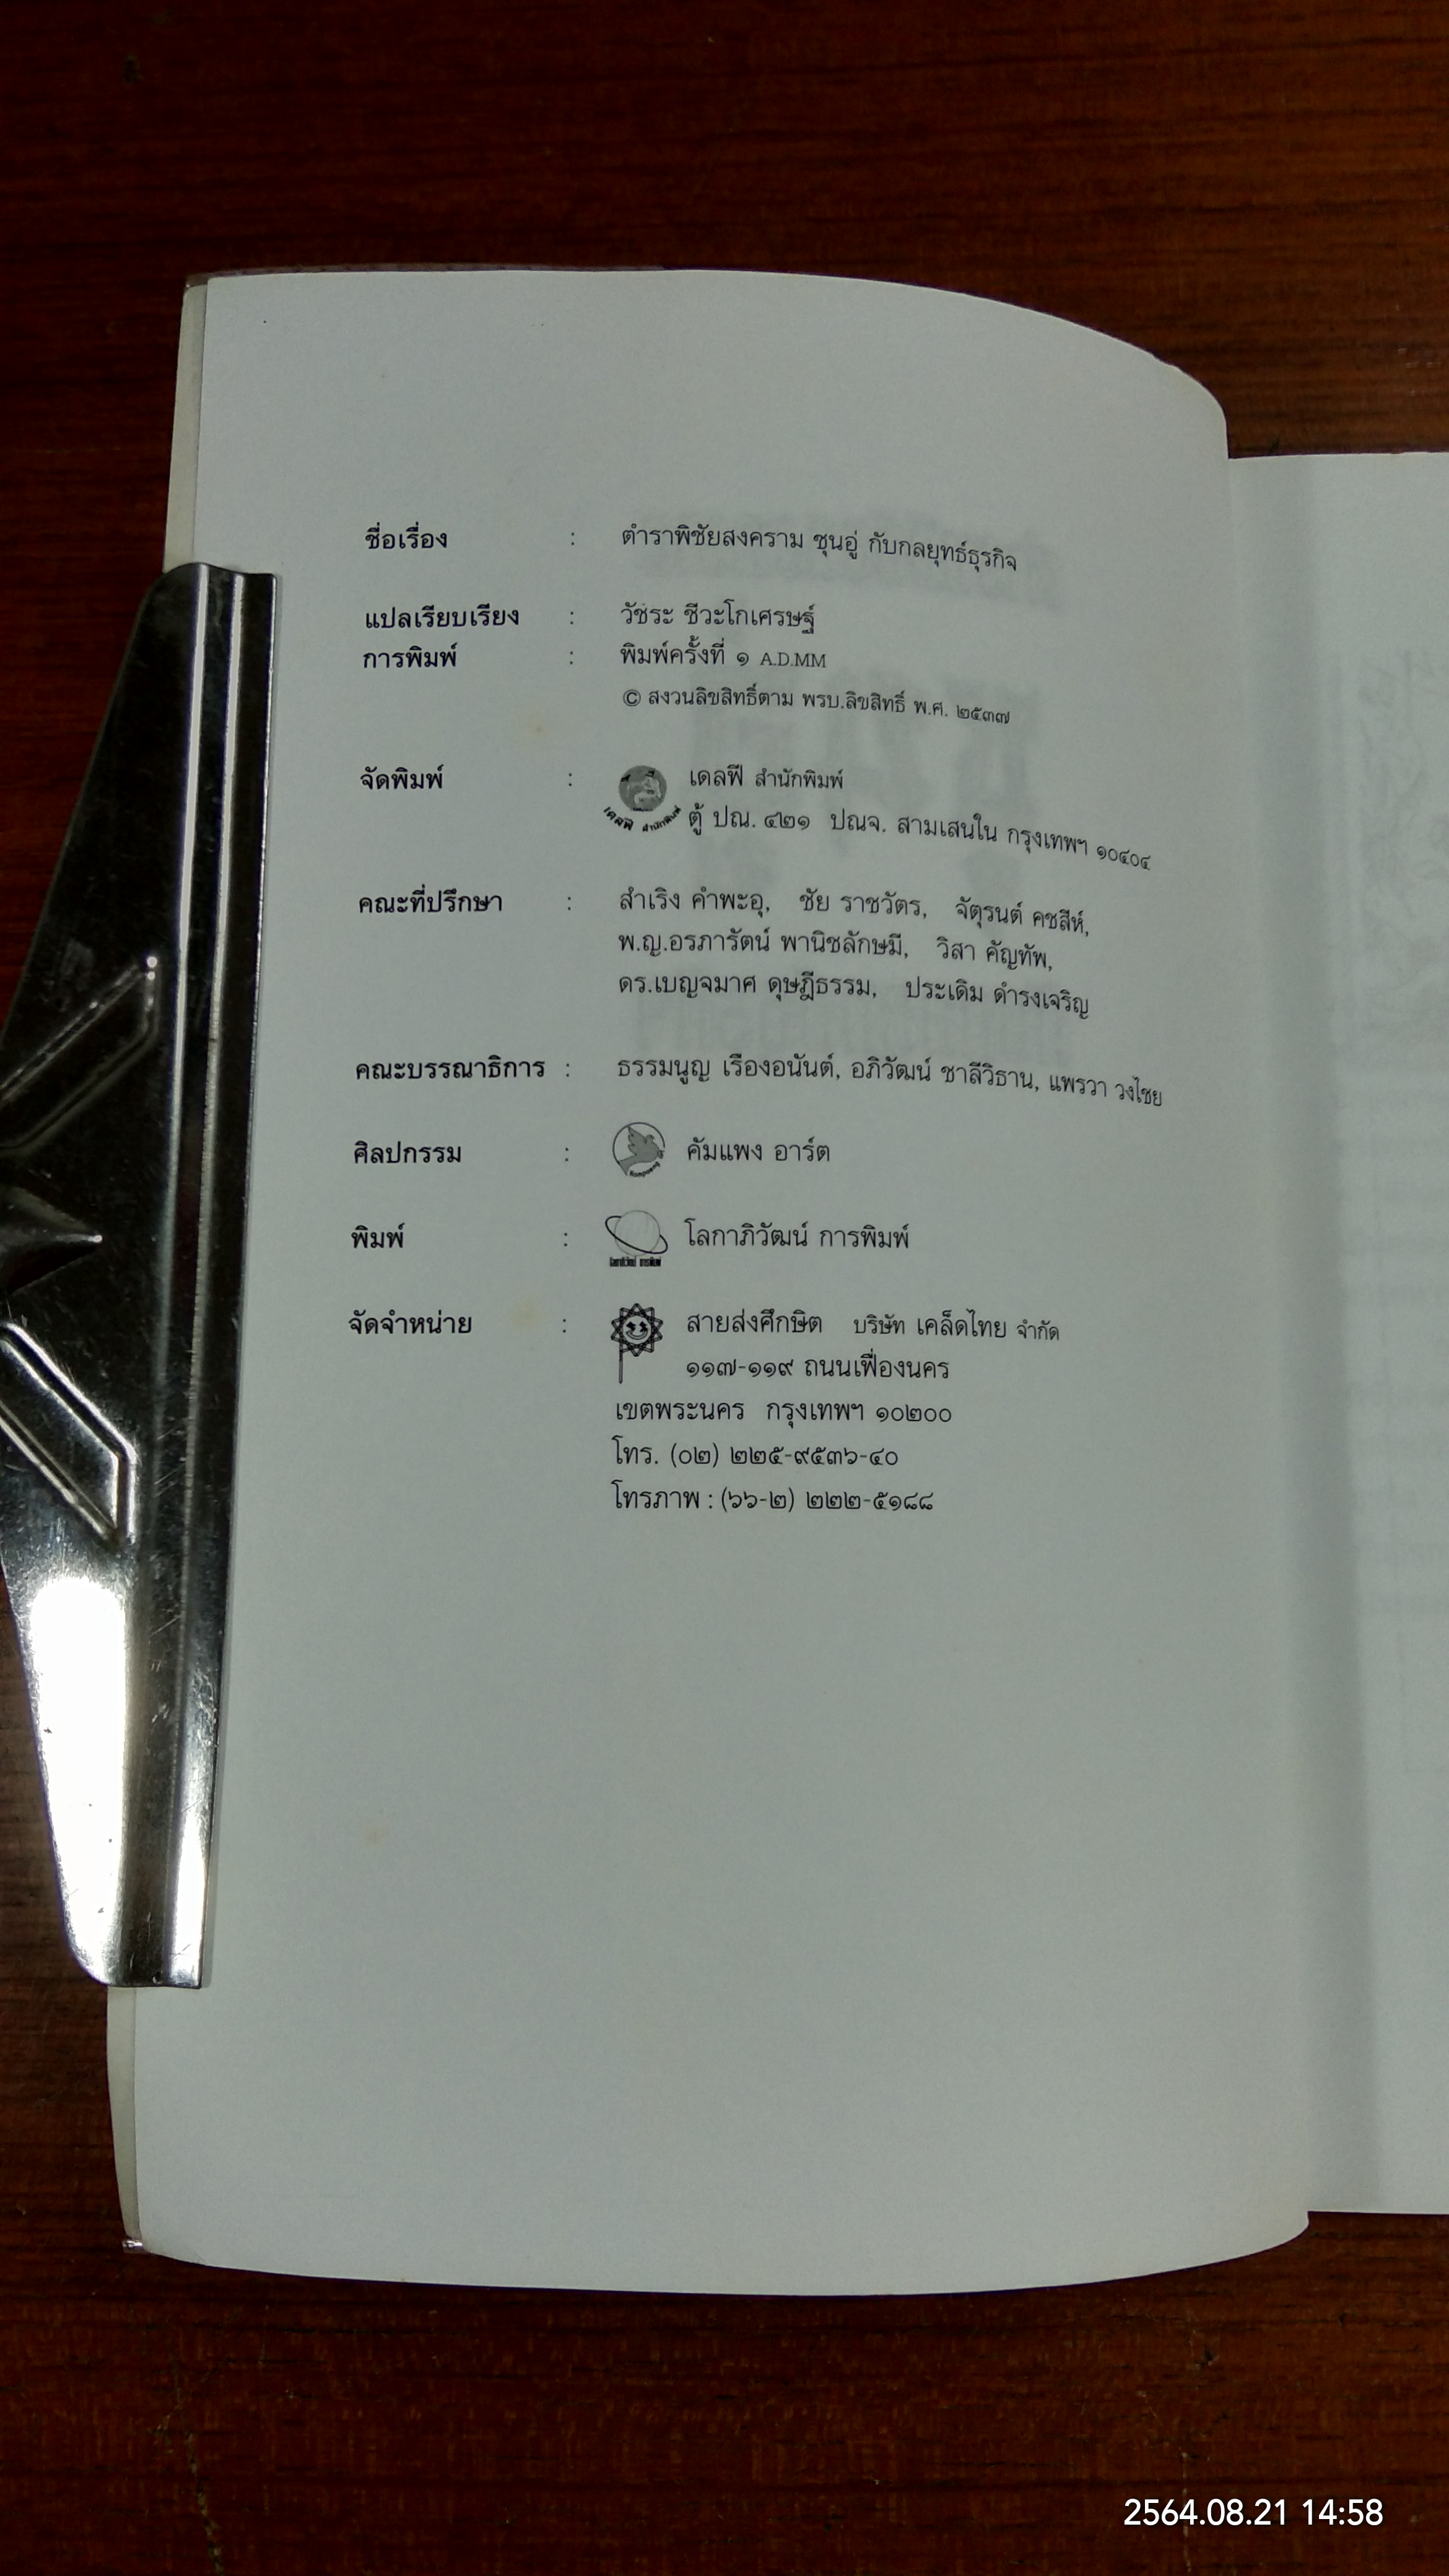 ชื่อเรื่อง : ตำราพิชัยสงคราม ซุนอู่ กับกลยุทธ์ธุรกิจ
แปลเรียบเรียง : วัชระ ชีวะโกเศรษฐ์
การพิมพ์ : พิมพ์ครั้งที่ ๑ A.D.MM
© สงวนลิขสิทธิ์ตาม พรบ.ลิขสิทธิ์ พ.ศ. ๒๕๓๗
จัดพิมพ์ : เดลฟี สำนักพิมพ์
เดลฟี สำนักพิมพ์
ตู้ ปณ. ๔๒๑ ปณจ. สามเสนใน กรุงเทพฯ ๑๐๔๐๔
คณะที่ปรึกษา : สำเริง คำพะอุ, ชัย ราชวัตร, จัตุรนต์ คชสีห์,
พ.ญ.อรภารัตน์ พานิชลักษมี, วิสา คัญทัพ,
ดร.เบญจมาศ ดุษฎีธรรม, ประเดิม ดำรงเจริญ
คณะบรรณาธิการ : ธรรมนูญ เรืองอนันต์, อภิวัฒน์ ชาลีวิธาน, แพรวา วงไชย
ศิลปกรรม : คัมแพง อาร์ต
พิมพ์ : โลกาภิวัฒน์ การพิมพ์
โลกาภิวัฒน์ การพิมพ์
จัดจำหน่าย : สายส่งศึกษิต บริษัท เคล็ดไทย จำกัด
๑๑๗-๑๑๙ ถนนเฟื่องนคร
เขตพระนคร กรุงเทพฯ ๑๐๒๐๐
โทร. (๐๒) ๒๒๕-๙๕๓๖-๔๐
โทรภาพ : (๖๖-๒) ๒๒๒-๕๑๘๘
2564.08.21 14:58